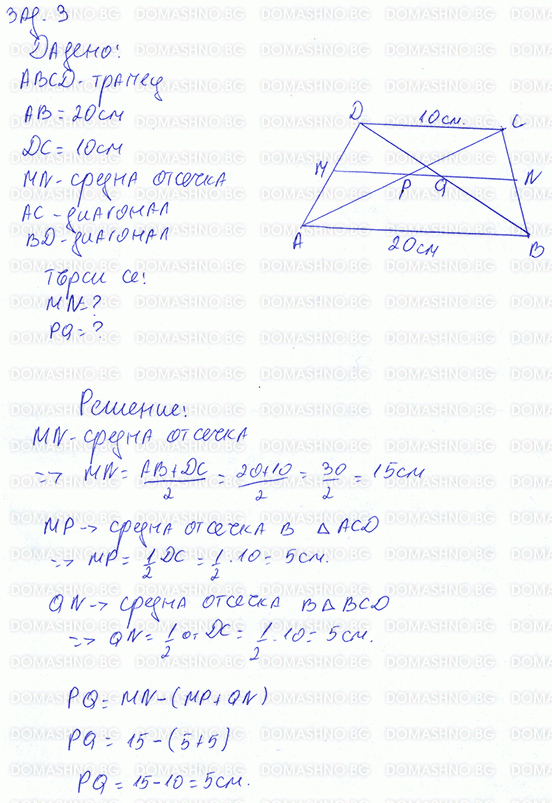 Зад. 3
Дадено:
ABCD - трапец
AB = 20 см
DC = 10 см
MN - средна отсечка
AC - диагонал
BD - диагонал
Търси се:
MN = ?
PQ = ?
D 10 см. C
M P Q N
A 20 см B
Решение:
MN - средна отсечка
=> MN = AB+DC/2 = 20+10/2 = 30/2 = 15 см
MP -> средна отсечка в △ ACD
=> MP = 1/2 DC = 1/2 . 10 = 5 см.
QN -> средна отсечка в △ BCD
=> QN = 1/2 от DC = 1/2 . 10 = 5 см.
PQ = MN - (MP + QN)
PQ = 15 - (5+5)
PQ = 15 - 10 = 5 см.
DOMASHNO.BG